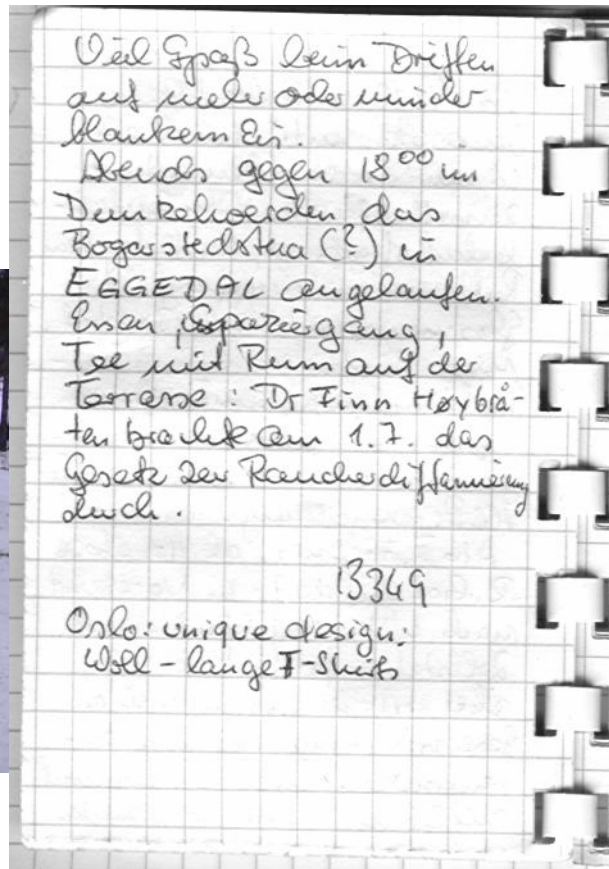 Viel Spaß beim Driften
auf mehr oder minder
blankem Eis.
Abends gegen 18⁰⁰ im
Dunkelwerden das
Bogarstedstua (?) in
EGGEDAL angelaufen.
Essen, Spaziergang,
Tee mit Rum auf der
Terrasse: Dr Finn Høybrå-
ten brachte am 1.7. das
Gesetz zur Raucherdiffamierung
durch.
13349
Oslo: unique design:
Woll-lange T-Shirts